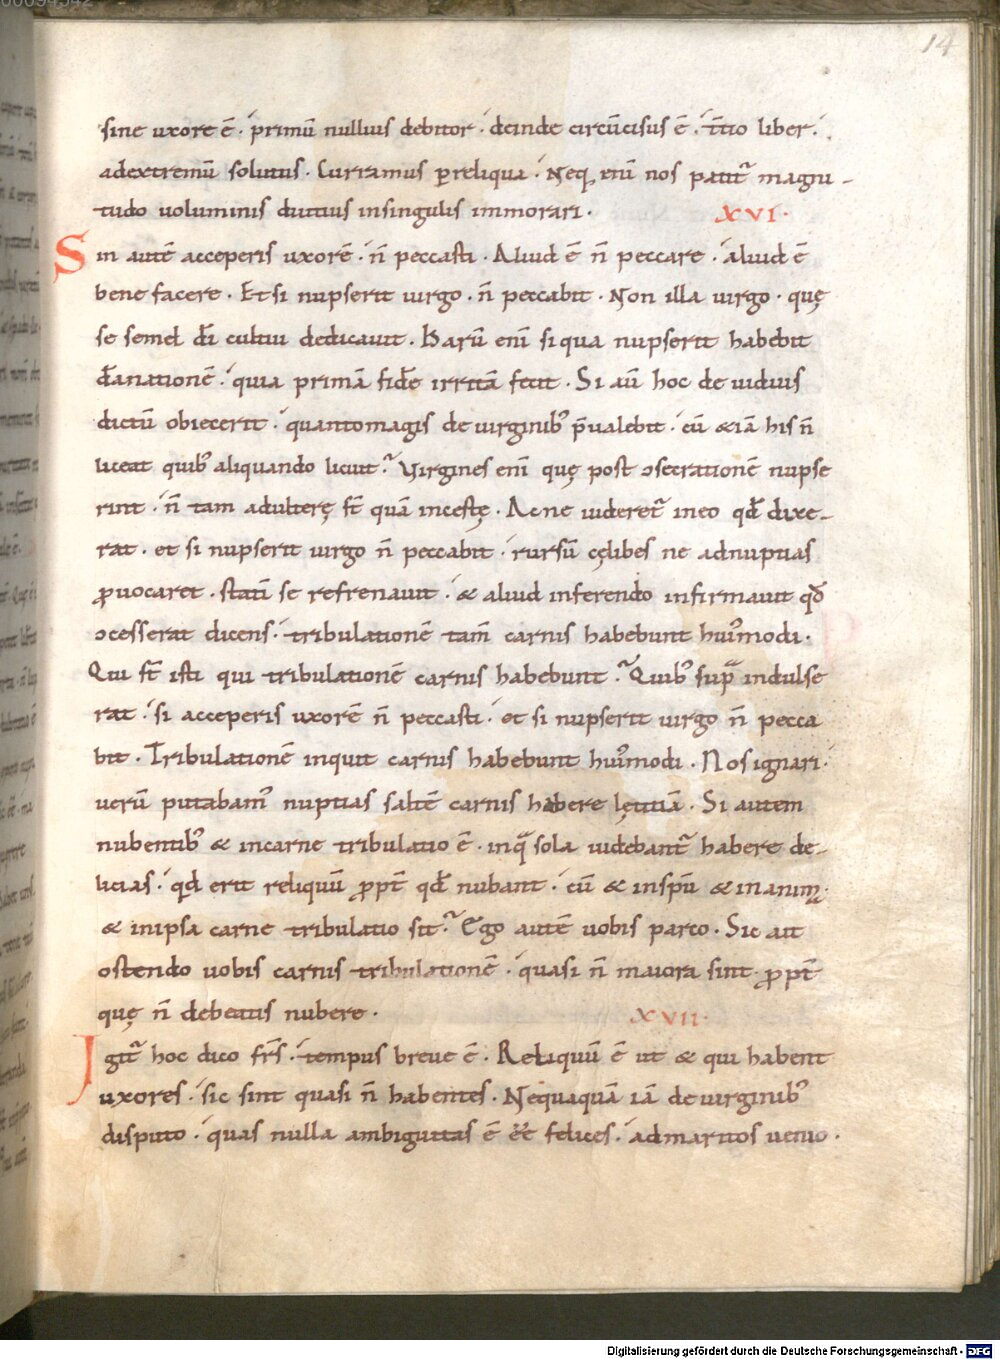 00094342
14
sine uxore ē. primū nullius debitor. deinde circūcisus ē. t̄tio liber.
adextremū solutus. Curramus p̱reliqua. Neq; enī nos patit᷑ magni-
tudo voluminis diutius insingulis immorari. XVI.
Sin autē acceperis uxorē. n̄ peccasti. Aliud ē n̄ peccare. aliud ē
bene facere. Et si nupserit uirgo. n̄ peccabit. Non illa uirgo. quę
se semel dī cultui dedicauit. Harū enī si qua nupserit habebit
dānationē. quia primā fidē irritā fecit. Si aū hoc de uiduis
dictū obiecerit. quantomagis de uirginib; p̄ualebit. cū &iā his n̄
liceat quib; aliquando licuit. Virgines enī quę post ↄsecrationē nupse
rint. n̄ tam adulterę st̄ quā incestę. Ac ne uideret᷑ ineo qđ dixe-
rat. et si nupserit uirgo n̄ peccabit. rursū cęlibes ne adnuptias
ꝓuocaret. statī se refrenauit. & aliud inferendo infirmauit qđ
ↄcesserat dicens. tribulationē tam̄ carnis habebunt hui᷒modi.
Qui st̄ isti qui tribulationē carnis habebunt. Quib; sup̄ indulse
rat. si acceperis uxorē n̄ peccasti. et si nupserit uirgo n̄ pecca
bit. Tribulationē inquit carnis habebunt hui᷒modi. Nos ignari.
uerū putabam᷒ nuptias saltē carnis habere lętitiā. Si autem
nubentib; & incarne tribulatio ē. inq̄ sola uidebant᷑ habere de-
licias. qid erit reliquū ꝓpt̄ qđ nubant. cū & insp̄u & inanimꝫ.
& inipsa carne tribulatio sit. Ego autē uobis parco. Sic ait
ostendo uobis carnis tribulationē. quasi n̄ maiora sint. ꝓpt̄
quę n̄ debeatis nubere. XVII.
Igit᷑ hoc dico fr̄s. tempus breue ē. Reliquū ē ut & qui habent
uxores. sic sint quasi n̄ habentes. Nequaquā iā de uirginib;
disputo. quas nulla ambiguitas ē eē felices. admaritos uenio.
Digitalisierung gefördert durch die Deutsche Forschungsgemeinschaft - DFG